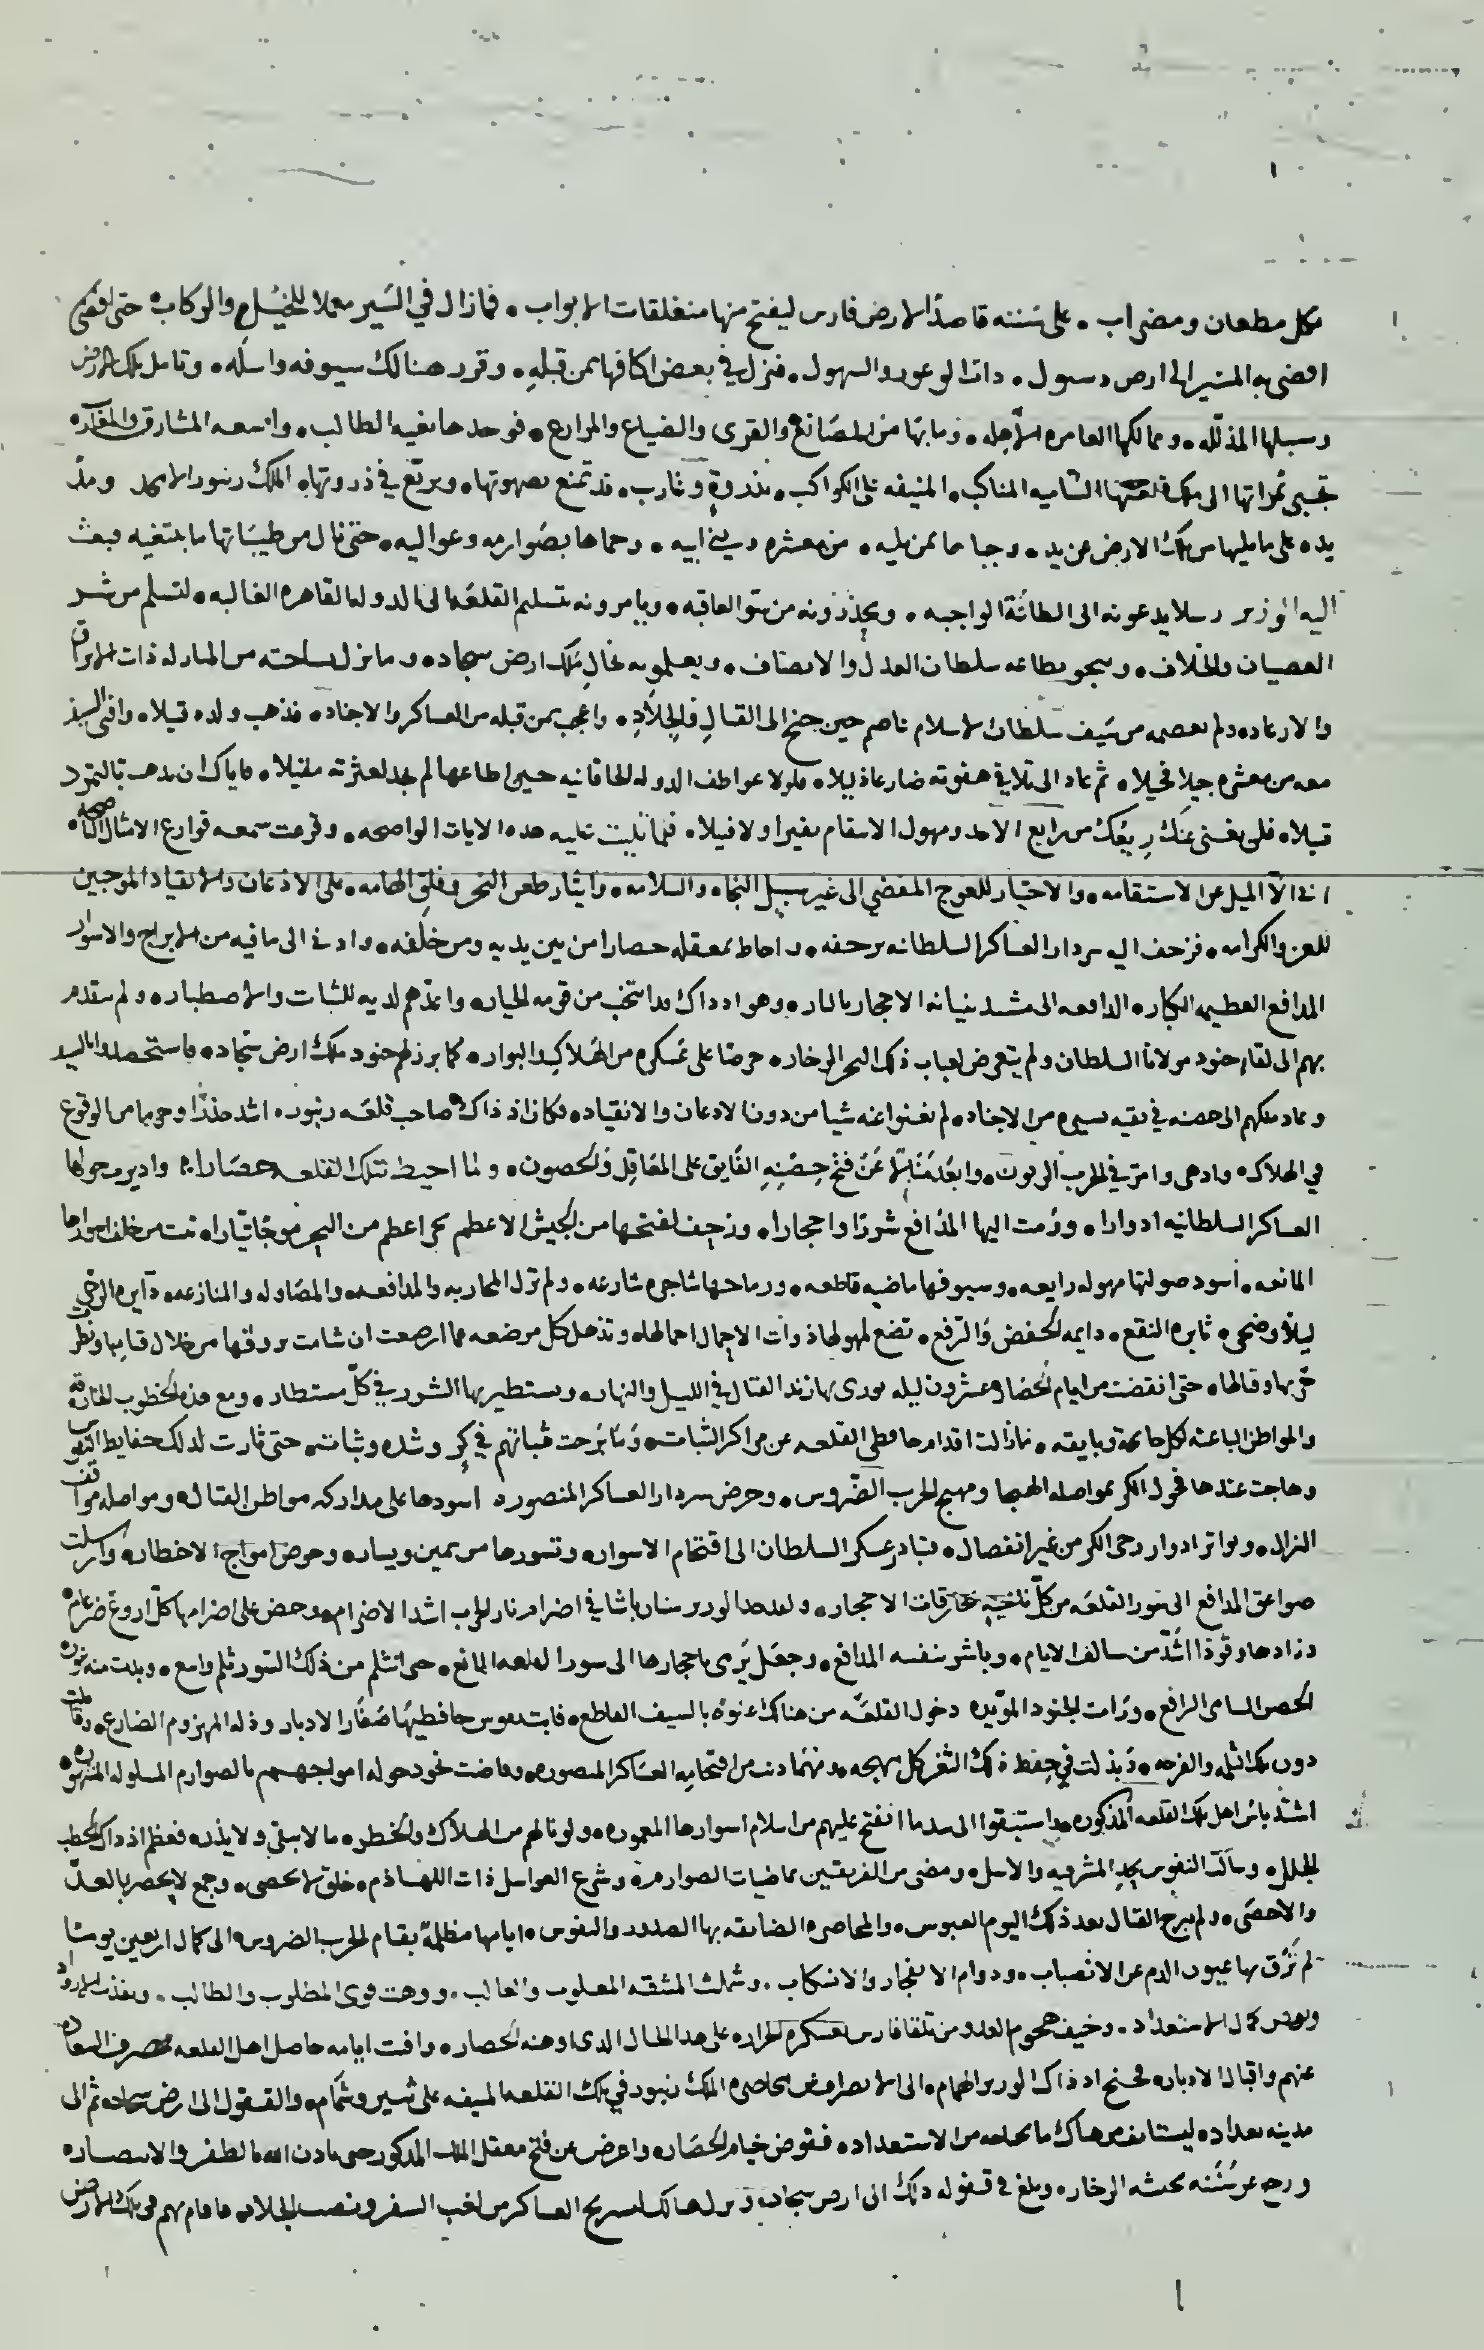 بكل مطعان ومضراب ٠ على سننه قاصدًا لارض فارس ليفتح منها منغلقات الابواب ٠ فما زال في السير معملا للخيل والركاب ٠ حتى
افضى به المسير الى ارض دسبول ٠ ذات الوعور والسهول ٠ فنزل في بعض اكنافها بمن قبله ٠ وقرر هنالك سيوفه واسله ٠ وتامل تلك الارض
وسبلها المذلله ٠ وممالكها العامره الآجله ٠ وما بها من المصانع والقرى والضياع والمزارع ٠ فوجدها بغيه الطالب ٠ واسعه المشارق والمغارب
تجبى ثمراتها الى ملك قلعتها الشاميه المناكب ٠ المنيفه على الكواكب ٠ بذروةٍ وغارب ٠ قد تمنع بصهوتها ٠ وتربّع في ذروتها ٠ الملك رنبور الامجد ومدّ
يده على ما يليها من تلك الارض عن يد ٠ وجباها بمن يليه ٠ من معشره وبني ابيه ٠ وحماها بصوارمه وعواليه ٠ حتى نال من طيباتها ما يبتغيه فبعث
اليه الوزير رسلا يدعونه الى الطاعة الواجبه ٠ ويحذرونه من سوّ العاقبه ٠ ويامرونه بتسليم القلعه الى الدوله القاهره الغالبه ٠ لتسلم من شر
العصيان والخلاف ٠ وينجو بطاعه سلطان العدل والانصاف ٠ ويعلمونه بحال ملك ارض سجاد ٠ وما نزل بساحته من المبارله ذات الابراق
والارعاد ٠ ولم يعصمه من سيف سلطان الاسلام عاصم حين جنح الى القتال والجلاد ٠ واعجب بمن قبله من العساكر والاجناد ٠ فذهب ولده قتيلا ٠ وافنى السيف
معه من معشره جيلا فجيلا ٠ ثم عاد الى تلافي هفوته ضارعا ذليلا ٠ فلولا عواطف الدوله الخاقانيه حين اطاعها لم يجد لعثرته مقيلا ٠ فاياك ان تذهب بالتمرد
قتيلا ٠ فلن يغني عنك ريعك من رايع الامد ومهول الانتقام نقيرا ولا فتيلا ٠ فلما تليت عليه هذه الايات الواضحه ٠ وقرعت سمعه قوارع الامثال الناصحه ٠
ابى الاّ الميل عن الاستقامه ٠ والاختيار للعوج المفضي الى غير سبيل النجاه والسلامه ٠ وايثار طعن النحر وفلق الهامه ٠ على الاذعان والانقياد الموجبين
للعز والكرامه ٠ فزحف اليه سردار العساكر السلطانيه بزحفه ٠ واحاط بمعقله حصارا من بين يديه ومن خلفه ٠ وادنى الى ما فيه من الابراج والاسوار
المدافع العظيمه الكبار ٠ الدافعه الى مشيد بنيانه الاحجار بالنار ٠ وهو اذ ذاك قد انتخب من قومه الخيار ٠ واعدّهم لديه للثبات والاصطبار ٠ ولم يتقدم
بهم الى لقاء جنود مولانا السلطان ولم يتعرض لعباب ذلك البحر الزخار ٠ حرصا على عسكره من الهلاك والبوار ٠ كما برز لهم جنود ملك ارض سجاد ٠ فاستحصدوا بالسيف
وعاد ملكهم الى حصنه في بقيه يسيره من الاجناد ٠ لم يغنوا عنه شيا من دون الاذعان والانقياد ٠ فكان اذ ذاك صاحب قلعه رنبور ٠ اشد حذرًا وحوبا من الوقوع
في الهلاك ٠ وادهى وامرّ في الحرب الزبون ٠ وابعد منالا عن فتح حصنه الفايق على المعاقل والحصون ٠ ولما احيط بتلك القلعه حصارا ٠ وادير حولها
العساكر السلطانيه ادوارا ٠ ورمت اليها المدافع شررًا واحجارا ٠ وزحف لفتحها من الجيش الاعظم بحرا اعظم من البحر موجًا تيّارا ٠ ثبت من خلف اسوارها
المانعه ٠ اسود صولتها مهوله رايعه ٠ وسيوفها ماضيه قاطعه ٠ ورماحها شاجره شارعه ٠ ولم تزل المحاربه والمدافعه والمصاوله والمنازعه ٠ دايره الرحى
ليلاً وضحى ٠ ثايره النقع ٠ دايمه الخفض والرفع ٠ تضع لهولها ذوات الاحمال احمالها ٠ وتذهل كل مرضعه عما ارضعت ان شامت بروقها من خلال قتامها ونظر
حربها وقتالها ٠ حتى انقضت من ايام الحصار عشرون ليله يورى بها زند القتال في الليل والنهار ٠ ويستطير بها الشرر في كلّ مستطار ٠ ومع هذه الخطوب الطارقه
والمواطن الباعثه لكل حايمة وبايقه ٠ ما زالت اقدام حافظي القلعه عن مراكز الثبات ٠ وما برحت فتيانهم في كرٍ وشده وثبات ٠ حتى ثارت لذلك حفايظ النفوس
وهاجت عندها فحول الكر بمواصله الهيجا ومهيج الحرب الضروس ٠ وحرض سردار العساكر المنصوره اسودها على مداركه مواطن القتال ٠ ومواصله مواقف
النزال ٠ وتواتر ادوار رحى الكر من غير انفصال ٠ فتبادر عسكر السلطان الى اقتحام الاسوار ٠ وتسورها من يمين ويسار ٠ وخوض امواج الاخطار ٠ وارسلت
صواعق المدافع الى سور القلعه من كلّ ناحيه محارقات الاحجار ٠ وبعدها الوزير سنان باشا في اضرام نار الحرب اشد الاضرام ٠ وحض على اضرامها كلّ اروع ضرغام ٠
وزادها وقودًا اشدّ من سالف الايام ٠ وباشر بنفسه المدافع ٠ وجعل يرمى باحجارها الى سور القلعه المانع ٠ حتى انثلم من ذلك السور ثلم واسع ٠ وبدت منه
الحصن السامى الرافع ٠ ورامت الجنود المؤيده دخول القلعه من هنالك عنوه بالسيف القاطع ٠ فابت نفوس حافظيها صغار الادبار وذله المهزوم الضارع ٠ وقاتلت
دون تلك الثلمه والفرجه ٠ وبذلت في حفظ ذلك الثغر كل مهجه ٠ ومنها دنت من اقتحامه العساكر المنصوره ٠ وخاضت نحو دخوله امواجهم بالصوارم المسلوله
اشتدّ باس اهل تلك القلعه المذكوره ٠ واستبقوا الى سد ما انفتح عليهم من اسلام اسوارها المعموره ٠ ولو نالهم من الهلاك والخطر ٠ ما لا يبقى ولا يذر ٠ فعظم اذ ذاك الخطب
الجلل ٠ وسالت النفوس بحد المشرفيه والاسل ٠ ومضى من الفريقين بماضيات الصوارم ٠ وشرع العواسل ذات اللهاذم ٠ خلق لا يحصى ٠ وجمع لا يحصر بالعدّ
والاحصى ٠ ولم يبرح القتال بعد ذلك اليوم العبوس ٠ والمحاصره الضايقه بها الصدور والنفوس ٠ ايامها مظلمة بقتام الحرب الضروس ٠ الى كمال اربعين يوما
لم ترق بها عيون الدم عن الانصباب ٠ ودوام الانفجار والانسكاب ٠ وشملت المشقه المغلوب والغالب ٠ ووهت قوى المطلوب والطالب ٠ ونفذت الازواد
وتقوض كمال الاستعداد ٠ وخيف هجوم العدو من تلقا فارس بعسكره الجراره على هذا الحال الذي اوهنه الحصار ٠ وافت ايامه حاصل اهل القلعه بصرف السعاده
عنهم واقبال الادبار ٠ فجنح اذ ذاك الوزير الهمام ٠ الى الانصراف عن محاصره الملك رنبور في تلك القلعه المنيفه على ثبير وشمام ٠ والقفول الى ارض سجاد ٠ ثم الى
مدينه بغداد ٠ ليستانف من هناك ما يحتاجه من الاستعداد ٠ فقوض خيام الحصار ٠ واعرض عن فتح معقل الملك المذكور حتى ياذن الله بالظفر والانتصار ٠
ورجع عن سننه بجيشه الزخار ٠ وبلغ في قفوله ذلك الى ارض سجاد ٠ ونزل هنالك ليستريح العساكر من لغب السفر ونصب الجلاد ٠ فاقام بهم في تلك الارض